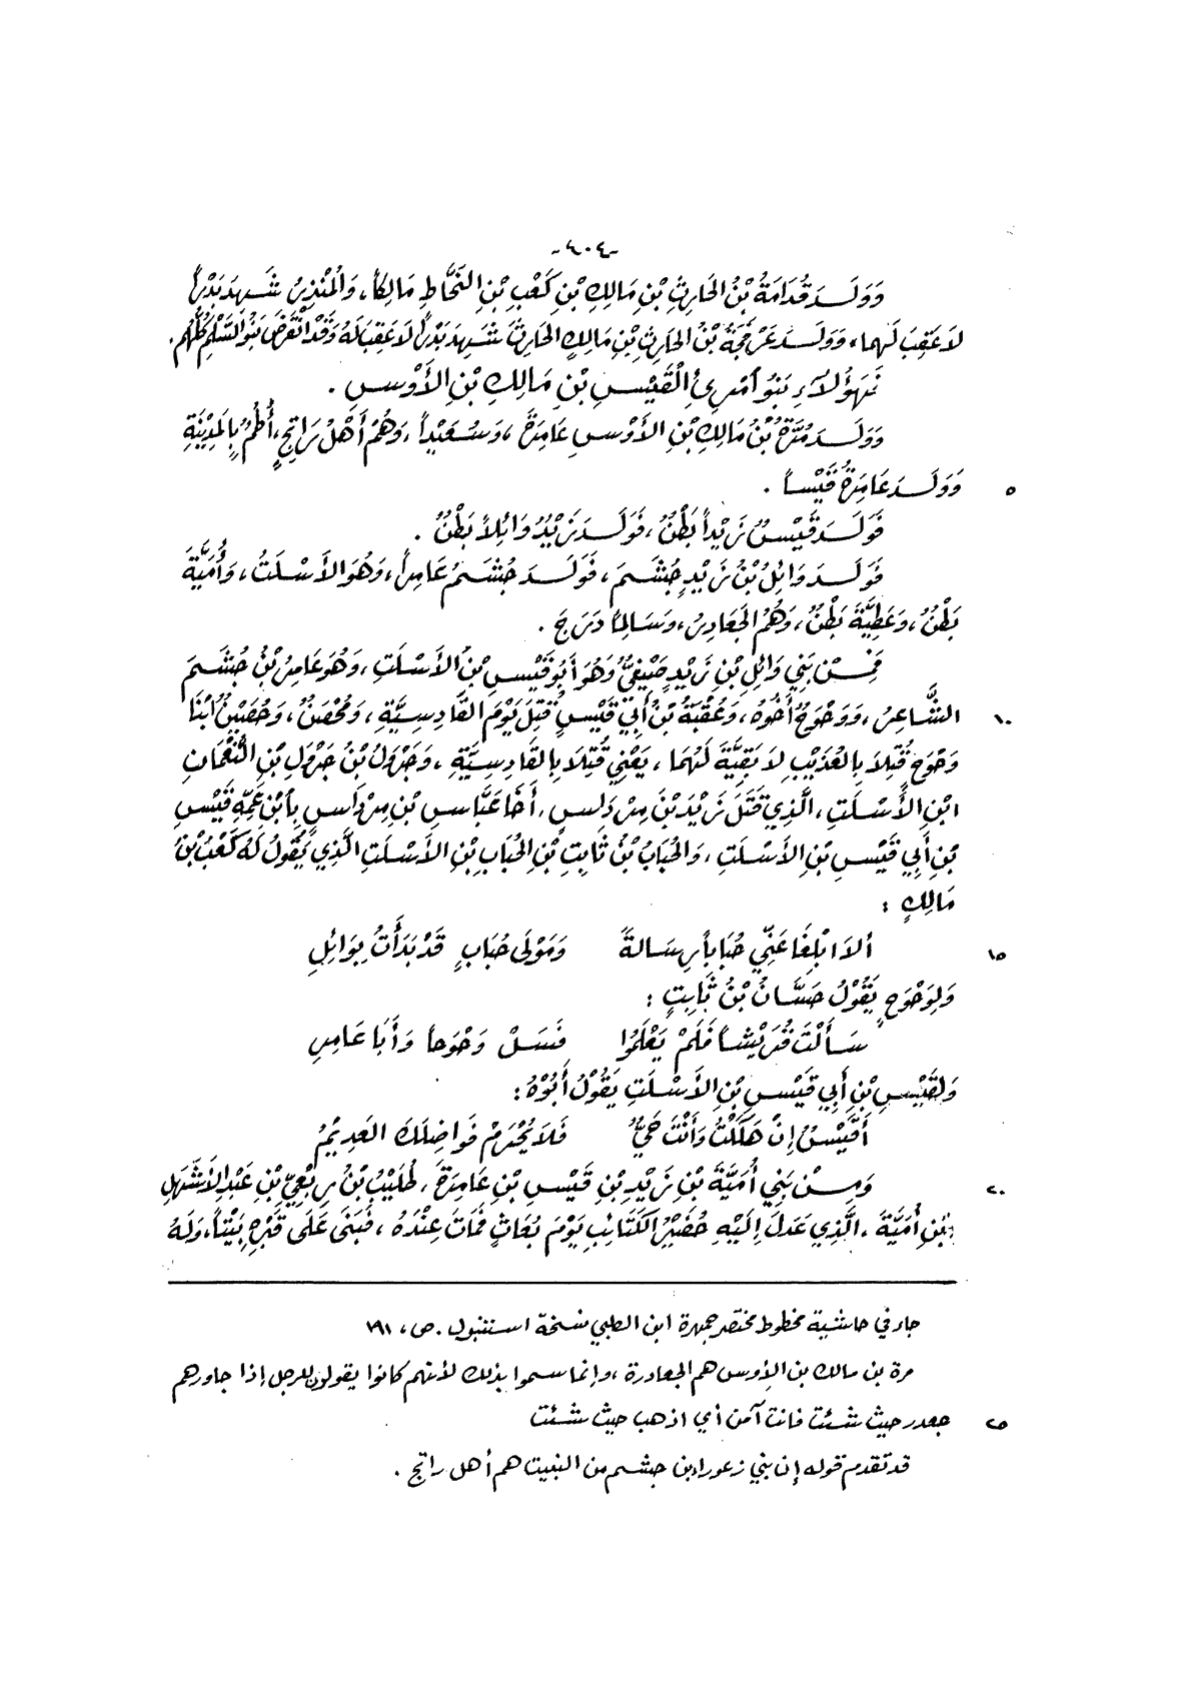 -٤٠٤-
وَوَلَدَ قُدَامَةُ بْنُ الحَارِثِ بْنِ مَالِكِ بْنِ كَعْبِ بْنِ النَّحَّاطِ مَالِكاً، وَالمُنْذِرَ شَهِدَ بَدْراً
لاَعَقِبَ لَهُما، وَوَلَدَ عَرْفَجَةُ بْنُ الحَارِثِ بْنِ مَالِكٍ الحَارِثَ شَهِدَ بَدْراً لاَعَقِبَ لَهُ وَقَدْ انْقَرَضَ بَنُو السَّلْمِ كُلُّهُم.
فَهَؤُلاَءِ بَنُو آمْرِئِ الْقَيْسِ بْنِ مَالِكِ بْنِ الأَوْسِ .
وَوَلَدَ مُرَّةُ بْنُ مَالِكِ بْنِ الأَوْسِ عَامِرَةَ ، وَسُعَيْداً ، وَهُمْ أَهْلُ رَاتِجٍ، أُطُمٌ بِالمَدِيْنَةِ
٥ وَوَلَدَ عَامِرَةُ قَيْساً .
فَوَلَدَ قَيْسٌ زَيْداً بَطْنٌ ، فَوَلَدَ زَيْدٌ وَائِلاً بَطْنٌ .
فَوَلَدَ وَائِلُ بْنُ زَيْدٍ جُشَمَ ، فَوَلَدَ جُشَمُ عَامِراً ، وَهُوَ الأَسْلَتُ ، وَأُمَيَّةَ
بَطْنٌ ، وَعَطِيَّةَ بَطْنٌ ، وَهُمُ الجَعَادِرُ ، وَسَالِماً دَرَجَ .
فَمِنْ بَنِي وَائِلِ بْنِ زَيْدٍ صَيْفِيٌّ وَهُوَ أَبُو قَيْسِ بْنُ الأَسْلَتِ ، وَهُوَ عَامِرُ بْنُ جُشَمَ
١٠ الشَّاعِرُ ، وَوَحْوَحٌ أَخُوهُ ، وَعُقْبَةُ بْنُ أَبِي قَيْسٍ قُتِلَ يَوْمَ القَادِسِيَّةِ ، وَمُحْصَنٌ ، وَحُصَيْنٌ ابْنَا
وَحْوَحٍ قُتِلاَ بِالعُذَيْبِ لاَ بَقِيَّةَ لَهُمَا ، يَعْنِي قُتِلاَ بِالقَادِسِيَّةِ ، وَجَرْوَلُ بْنُ جَرْوَلِ بْنِ النُّعْمَانِ
ابْنِ الأَسْلَتِ ، الَّذِي قَتَلَ زَيْدَ بْنَ مِرْدَاسٍ ، أَخَا عَبَّاسِ بْنِ مِرْدَاسٍ بِابْنِ عَمِّهِ قَيْسِ
بْنِ أَبِي قَيْسِ بْنِ الأَسْلَتِ ، وَالحُبَابُ بْنُ ثَابِتِ بْنِ الحُبَابِ بْنِ الأَسْلَتِ الَّذِي يَقُولُ لَهُ كَعْبُ بْنُ
مَالِكٍ :
١٥ أَلاَ ابْلِغَا عَنِّي حُبَاباً رِسَالةً     وَمَوْلَى حُبَابٍ قَدْ بَدَأْتُ بِوَائِلِ
وَلِوَحْوَحٍ يَقُوْلُ حَسَّانُ بْنُ ثَابِتٍ :
سَأَلْتَ قُرَيْشاً فَلَمْ يَعْلَمُوا     فَسَلْ وَحْوَحاً وَأَبَا عَامِرِ
وَلِقَيْسِ بْنِ أَبِي قَيْسِ بْنِ الأَسْلَتِ يَقُوْلُ أَبُوْهُ :
أَقَيْسُ إِنْ هَلَكْتُ وَأَنْتَ حَيٌّ     فَلاَ يُحْرَمْ فَوَاضِلَكَ العَدِيْمُ
٢٠ وَمِنْ بَنِي أُمَيَّةَ بْنِ زَيْدِ بْنِ قَيْسِ بْنِ عَامِرَةَ ، طُلَيْبُ بْنُ رِبْعِيِّ بْنِ عَبْدِ الأَشْهَلِ
بْنِ أُمَيَّةَ ، الَّذِي عَدَلَ إِلَيْهِ حُضَيْرُ الكَتَائِبِ يَوْمَ بُعَاثٍ فَمَاتَ عِنْدَهُ ، فَبَنَى عَلَى قَبْرِهِ بَيْتاً ، وَلَهُ
جاء في حاشية مخطوط مختصر جمهرة ابن الكلبي نسخة استنبول . ص، ١٩١
مرة بن مالك بن الأوس هم الجعادرة ، وإنما سموا بذلك لأنهم كانوا يقولون للرجل إذا جاورهم
٢٥ جعدر حيث شئت فانت آمن أي اذهب حيث شئت
قد تقدم قوله إن بني زعوراء بن جشم من النبيت هم أهل راتج .